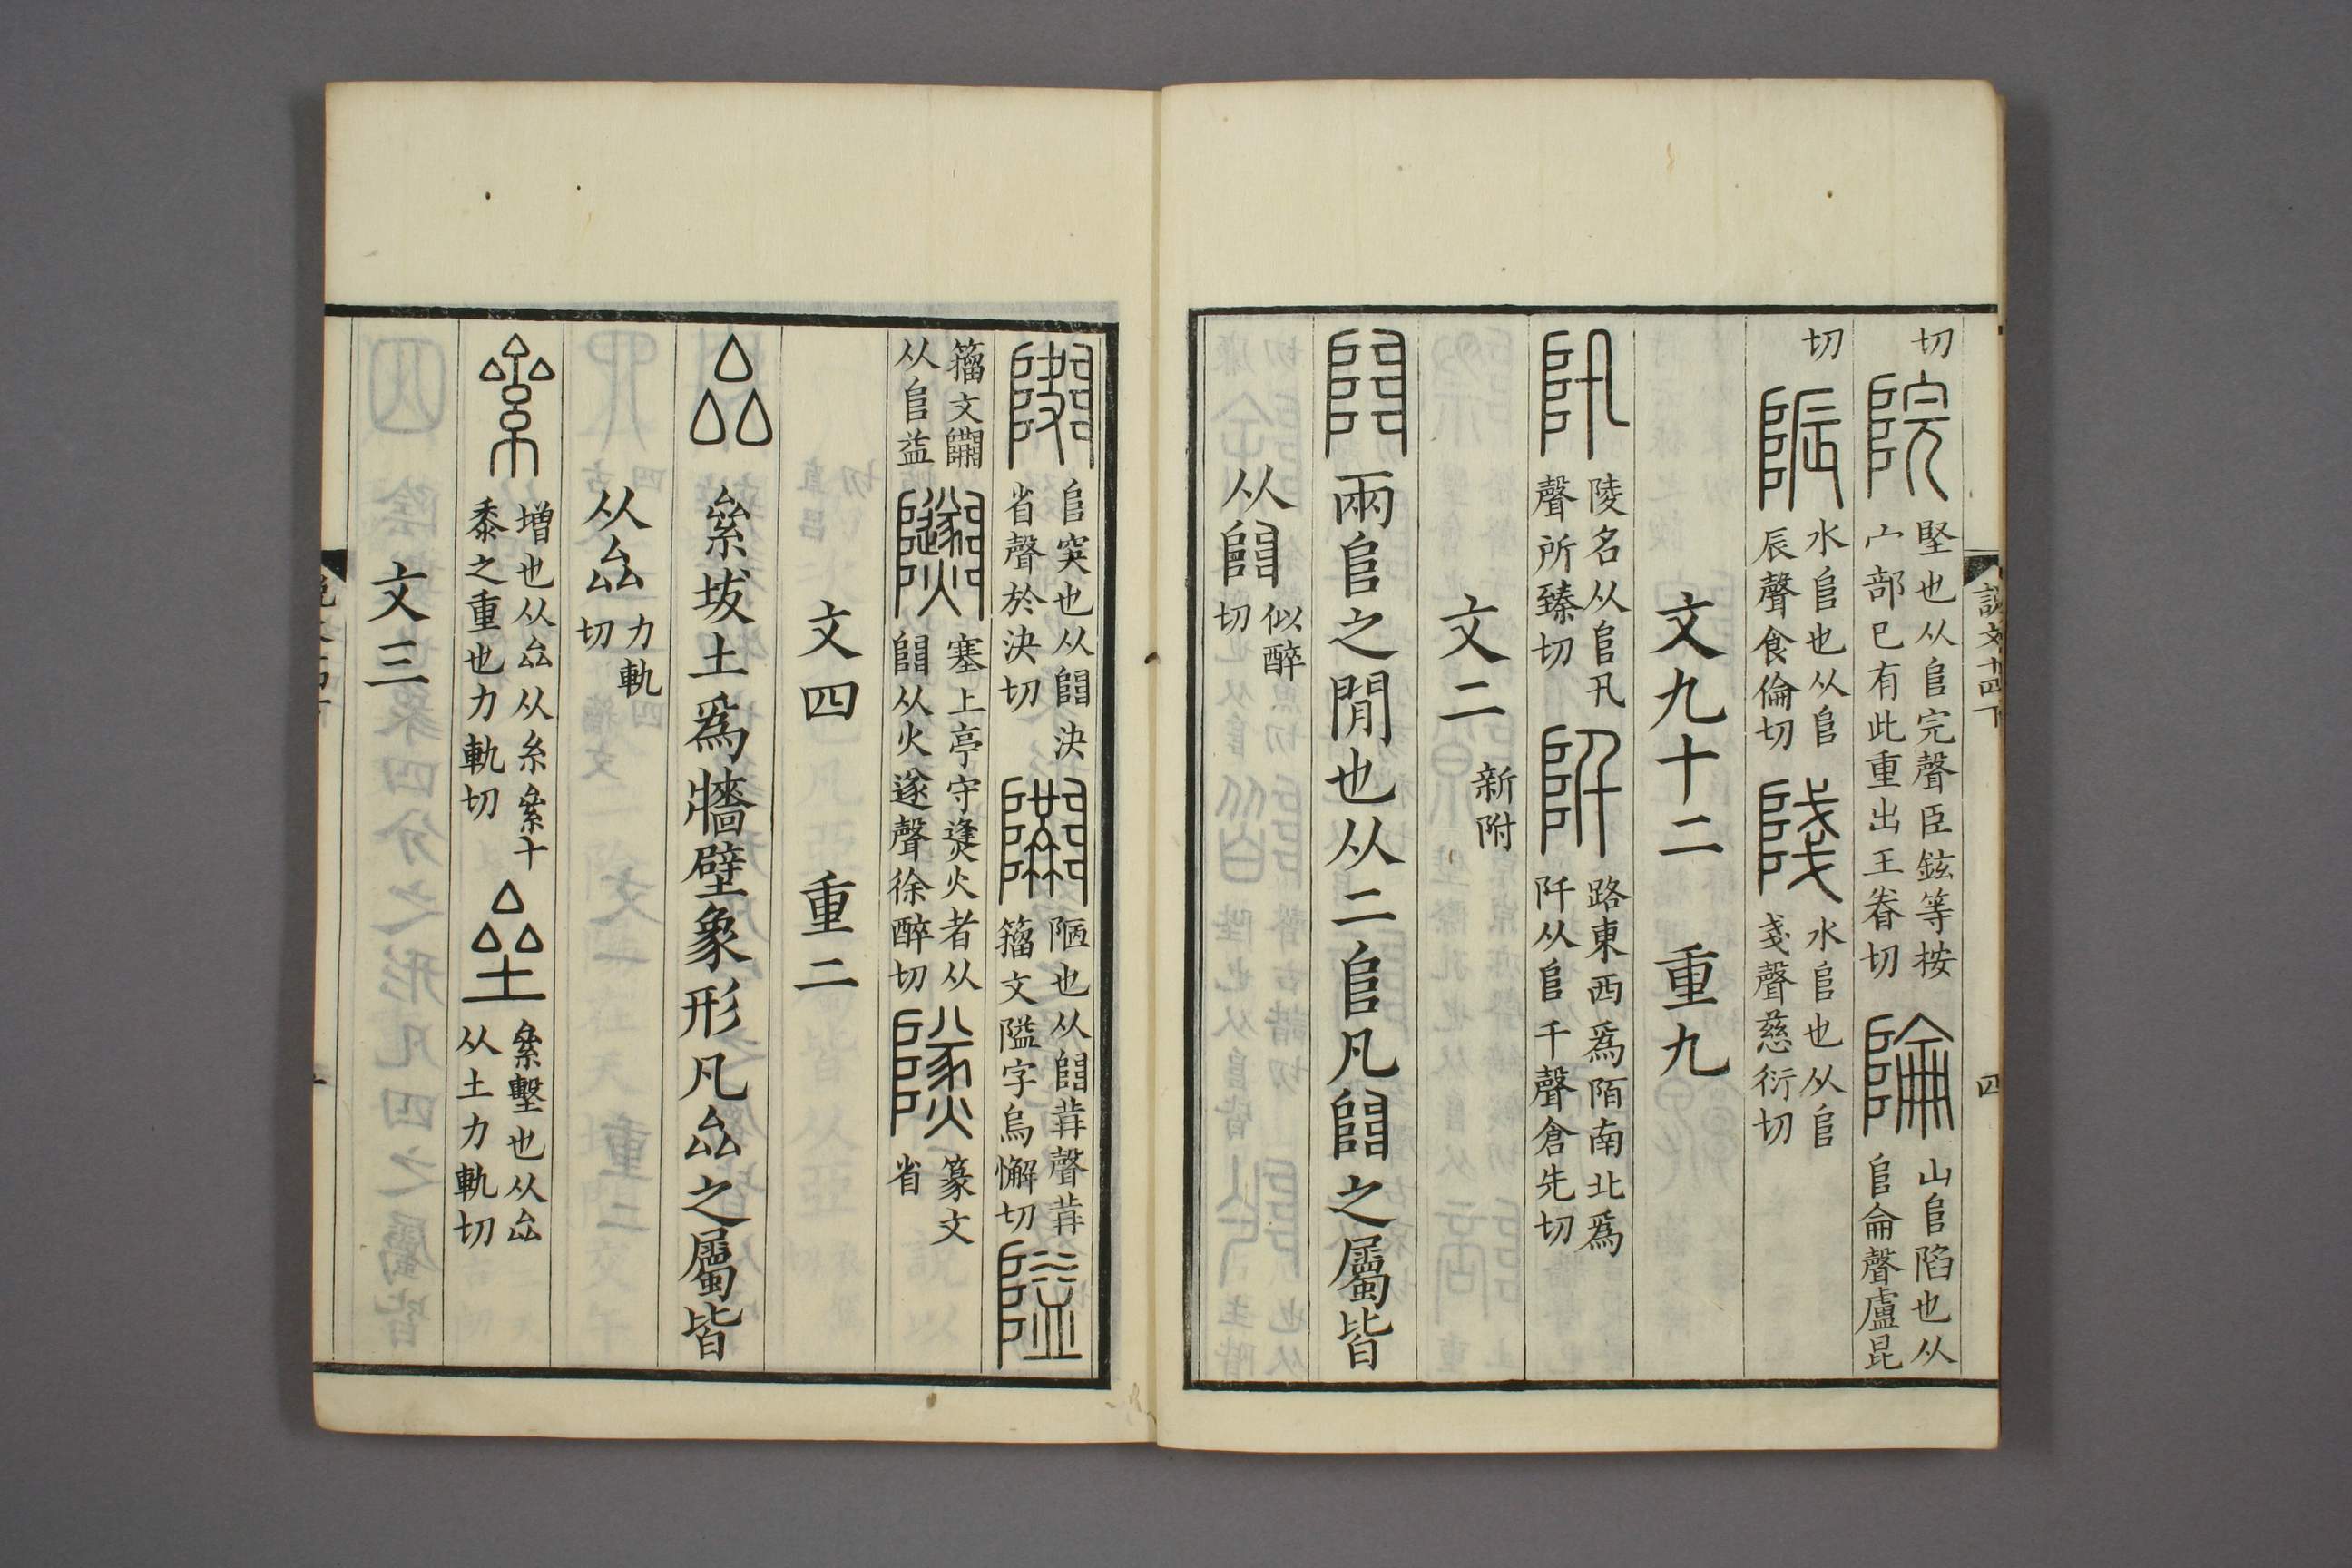 切院堅也从𨸏完聲臣鉉等按宀部已有此重出王眷切陯山𨸏陷也从𨸏侖聲盧昆
切陙水𨸏也从𨸏辰聲食倫切䧖水𨸏也从𨸏戔聲慈衍切
文九十二 重九
阠陵名从𨸏卂聲所臻切阡路東西爲陌南北爲阡从𨸏千聲倉先切
文二 新附
𨺅兩𨸏之閒也从二𨸏凡𨺅之屬皆
从𨺅似醉切
𨸏突也从𨺅決省聲於決切 陋也从𨺅𦰩聲𦰩籒文隘字烏懈切
籒文𨺅从𨸏益 塞上亭守㷭火者从𨺅从火遂聲徐醉切 篆文省
文四 重二
厽絫坺土爲牆壁象形凡厽之屬皆
从厽力軌切
絫增也从厽从糸絫十黍之重也力軌切垒絫墼也从厽从土力軌切
文三
說文十四下
四